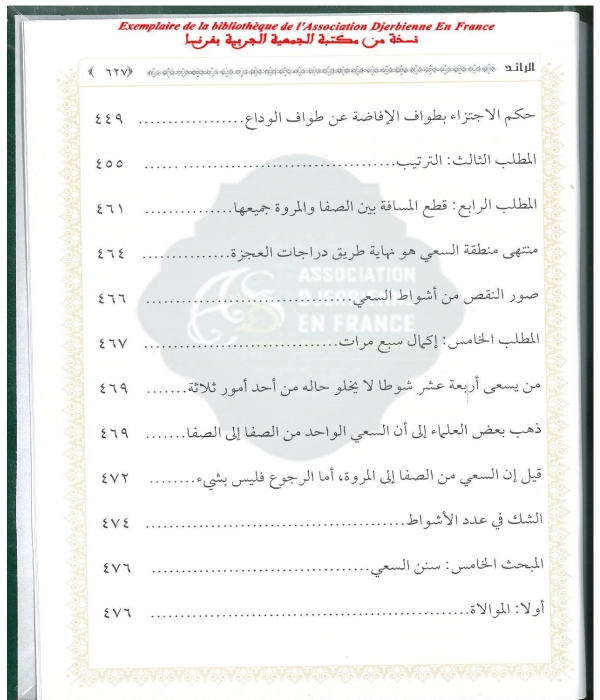 Exemplaire de la bibliothèque de l'Association Djerbienne En France
نسخة من مكتبة الجمعية الجربية بفرنسا
الرائد ﴿٦٢٧﴾
حكم الاجتزاء بطواف الإفاضة عن طواف الوداع.................. ٤٤٩
المطلب الثالث: الترتيب.................................. ٤٥٥
المطلب الرابع: قطع المسافة بين الصفا والمروة جميعها............... ٤٦١
منتهى منطقة السعي هو نهاية طريق دراجات العجزة............... ٤٦٤
ASSOCIATION
DJERBIENNE
EN FRANCE
صور النقص من أشواط السعي............................ ٤٦٦
المطلب الخامس: إكمال سبع مرات.......................... ٤٦٧
من يسعى أربعة عشر شوطا لا يخلو حاله من أحد أمور ثلاثة....... ٤٦٩
ذهب بعض العلماء إلى أن السعي الواحد من الصفا إلى الصفا....... ٤٦٩
قيل إن السعي من الصفا إلى المروة، أما الرجوع فليس بشيء........ ٤٧٢
الشك في عدد الأشواط.................................. ٤٧٤
المبحث الخامس: سنن السعي............................... ٤٧٦
أولا: الموالاة.......................................... ٤٧٦